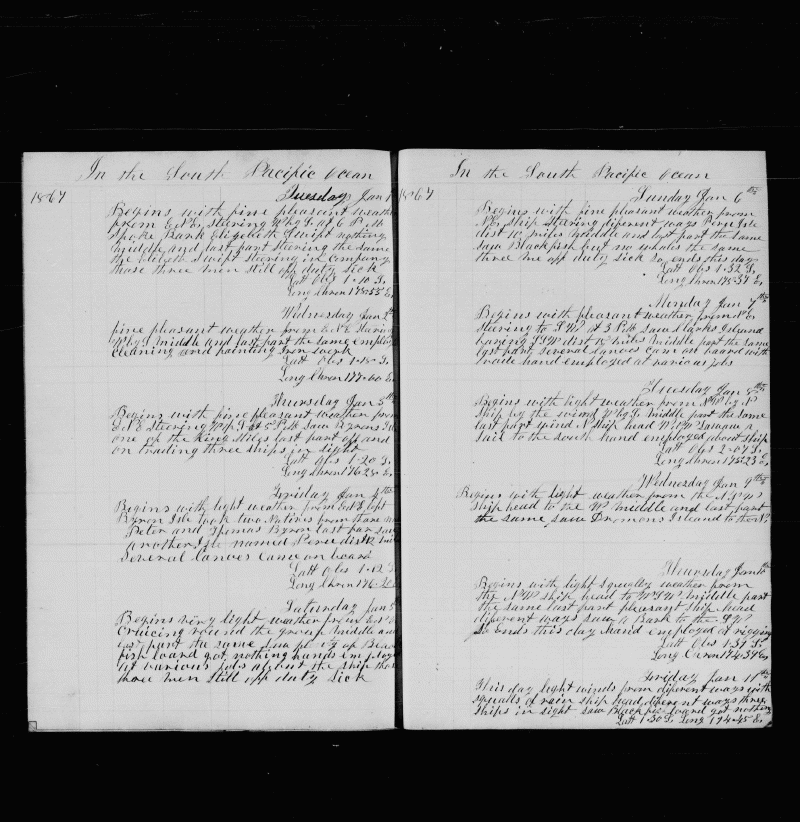 In the South Pacific Ocean
1867
Tuesday Jan 1
Begins with fine pleasant weather
from E.N.E. steering W by S. at 6 P.M.
spoke Bark Elizebeth Swift nothing
middle and last part steering the same
the Elizebeth Swift steering in company
those three men still off duty sick
Latt Obs 1-10 S.
Long Chron 178-53 E.
Wednesday Jan 2
fine pleasant weather from E.N.E. stering
W by S middle and last part the same employ
cleaning and painting Iron work
Latt Obs 1-15 S.
Long Chron 177-00 E.
Thursday Jan 3
Begins with fine pleasant weather from
E.N.E. steering W by S at 5 P.M. saw Byrons Isle
one of the Kings Miles last part off and
on trading three ships in sight
Latt Obs 1-20 S.
Long Chron 176-25 E.
Friday Jan 4th
Begins with light weather from E.N.E. off
Byron Isle took two Natives from there
Peter and Thomas Byron last par saw
another Isle named Peroe dist 12 miles
several canoes came on board
Latt Obs 1-12 S.
Long Chron 176
Saturday Jan 5
Begins very light weather from E.N.E.
cruicing round the group middle and
last part the same of Black
fish loard got nothing hands imploye
at various jobs about the ship those
three men still off duty sick
In the South Pacific Ocean
1867
Sunday Jan 6th
Begins with fine pleasant weather from
N.E. ship steering diferent ways Peroe Isle
dist 10 miles middle and last part the same
saw Blackfish but no whales the same
three me off duty sick so ends this day
Latt Obs 1-32 S.
Long Chron 175-37 E.
Monday Jan 7th
Begins with pleasant weather from N.E.
steering to S.W. at 3 P.M. saw Clarks Island
baring S.S.W. dist miles middle part the same
last part several canoes cam on board with
trade hand employed at various jobs
Tuesday Jan 8th
Begins with light weather from N.W. by N.
ship by the wind W by S. middle part the same
last part wind N. ship head W.N.W. saw a
sail to the south hand employed about ship
Latt Obs 2-07 S.
Long Chron 175-23 E.
Wednesday Jan 9th
Begins with light weather from the N.N.W.
ship head to the W. middle and last part
the same saw Dromons Island to the
Thursday Jan 10th
Begins with light squally weather from
the N.W. ship head to W.S.W. middle part
the same last part pleasant ship head
diferent ways saw a Bark to the S.W.
so ends this day hand employed at riggin
Latt Obs 1-31 S.
Long Cron 174-57 E.
Friday Jan 11th
This day light winds from diferent ways with
squalls of rain ship head diferent ways three
ships in sight saw Blackfis loard got nothing
Latt 1-30 S. Long 174-45 E.